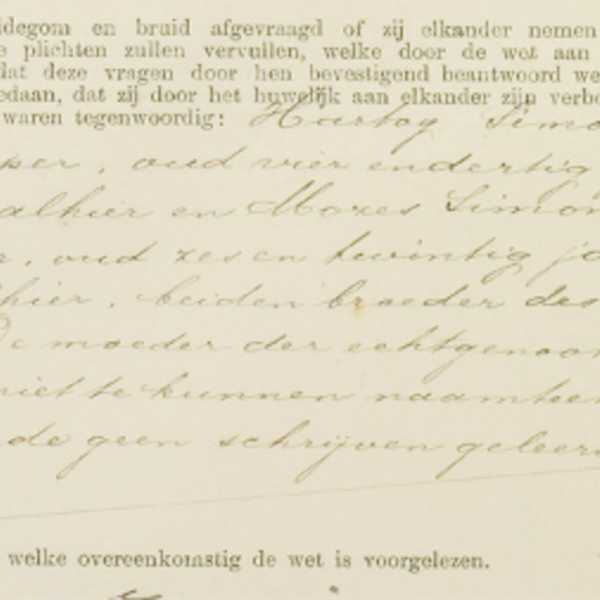 idegom en bruid afgevraagd of zij elkander nemen
plichten zullen vervullen, welke door de wet aan
dat deze vragen door hen bevestigend beantwoord we
edaan, dat zij door het huwelijk aan elkander zijn verbo
waren tegenwoordig: Hartog Simo
per, oud vier endertig
alhier en Mozes Simon
r, oud zes en twintig ja
hier, beiden broeder des
De moeder der echtgenoo
niet te kunnen naamteek
de geen schrijven geleerd
welke overeenkomstig de wet is voorgelezen.